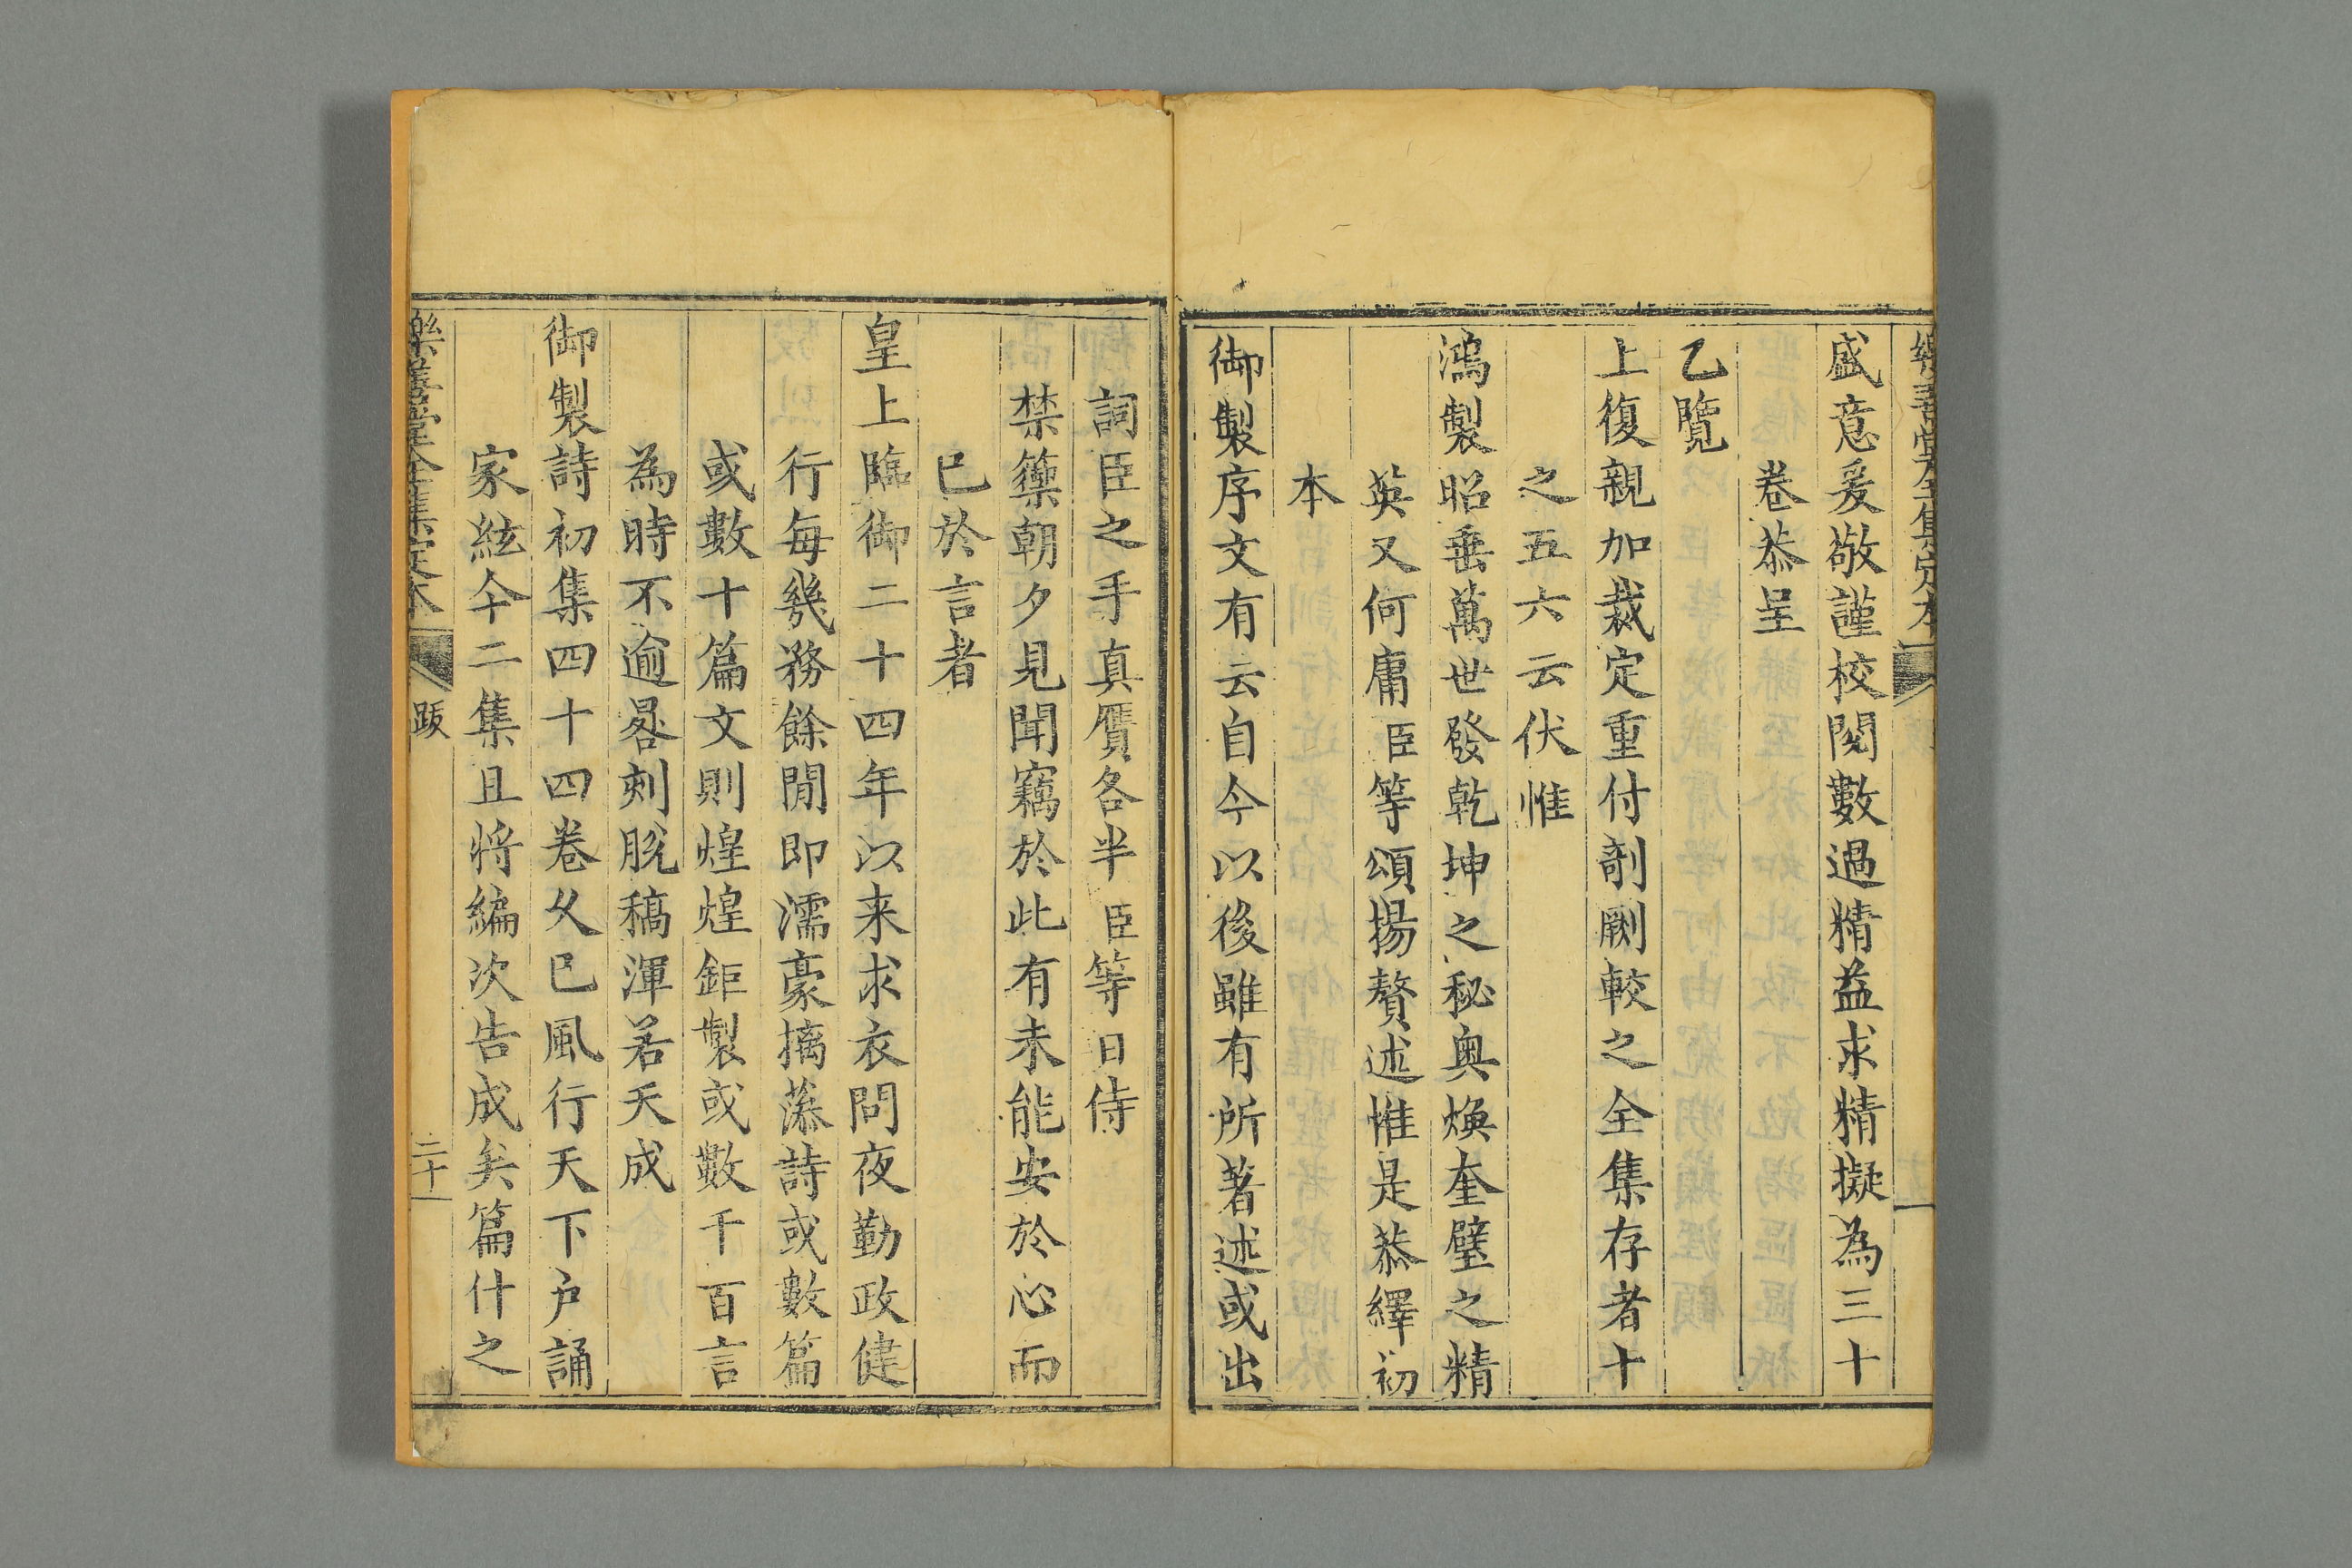 樂善堂全集定本
盛意爰敬謹校閱數過精益求精擬為三十
卷恭呈
乙覽
上復親加裁定重付剞劂較之全集存者十
之五六云伏惟
鴻製昭垂萬世發乾坤之秘奥煥奎璧之精
英又何庸臣等頌揚贅述惟是恭繹初
本
御製序文有云自今以後雖有所著述或出
詞臣之手真贋各半臣等日侍
禁籞朝夕見聞竊於此有未能安於心而
已於言者
皇上臨御二十四年以来求衣問夜勤政健
行每幾務餘閒即濡豪摛藻詩或數篇
或數十篇文則煌煌鉅製或數千百言
為時不逾晷刻脫稿渾若天成
御製詩初集四十四卷久已風行天下户誦
家絃今二集且將編次告成矣篇什之
樂善堂全集定本
跋
二十一